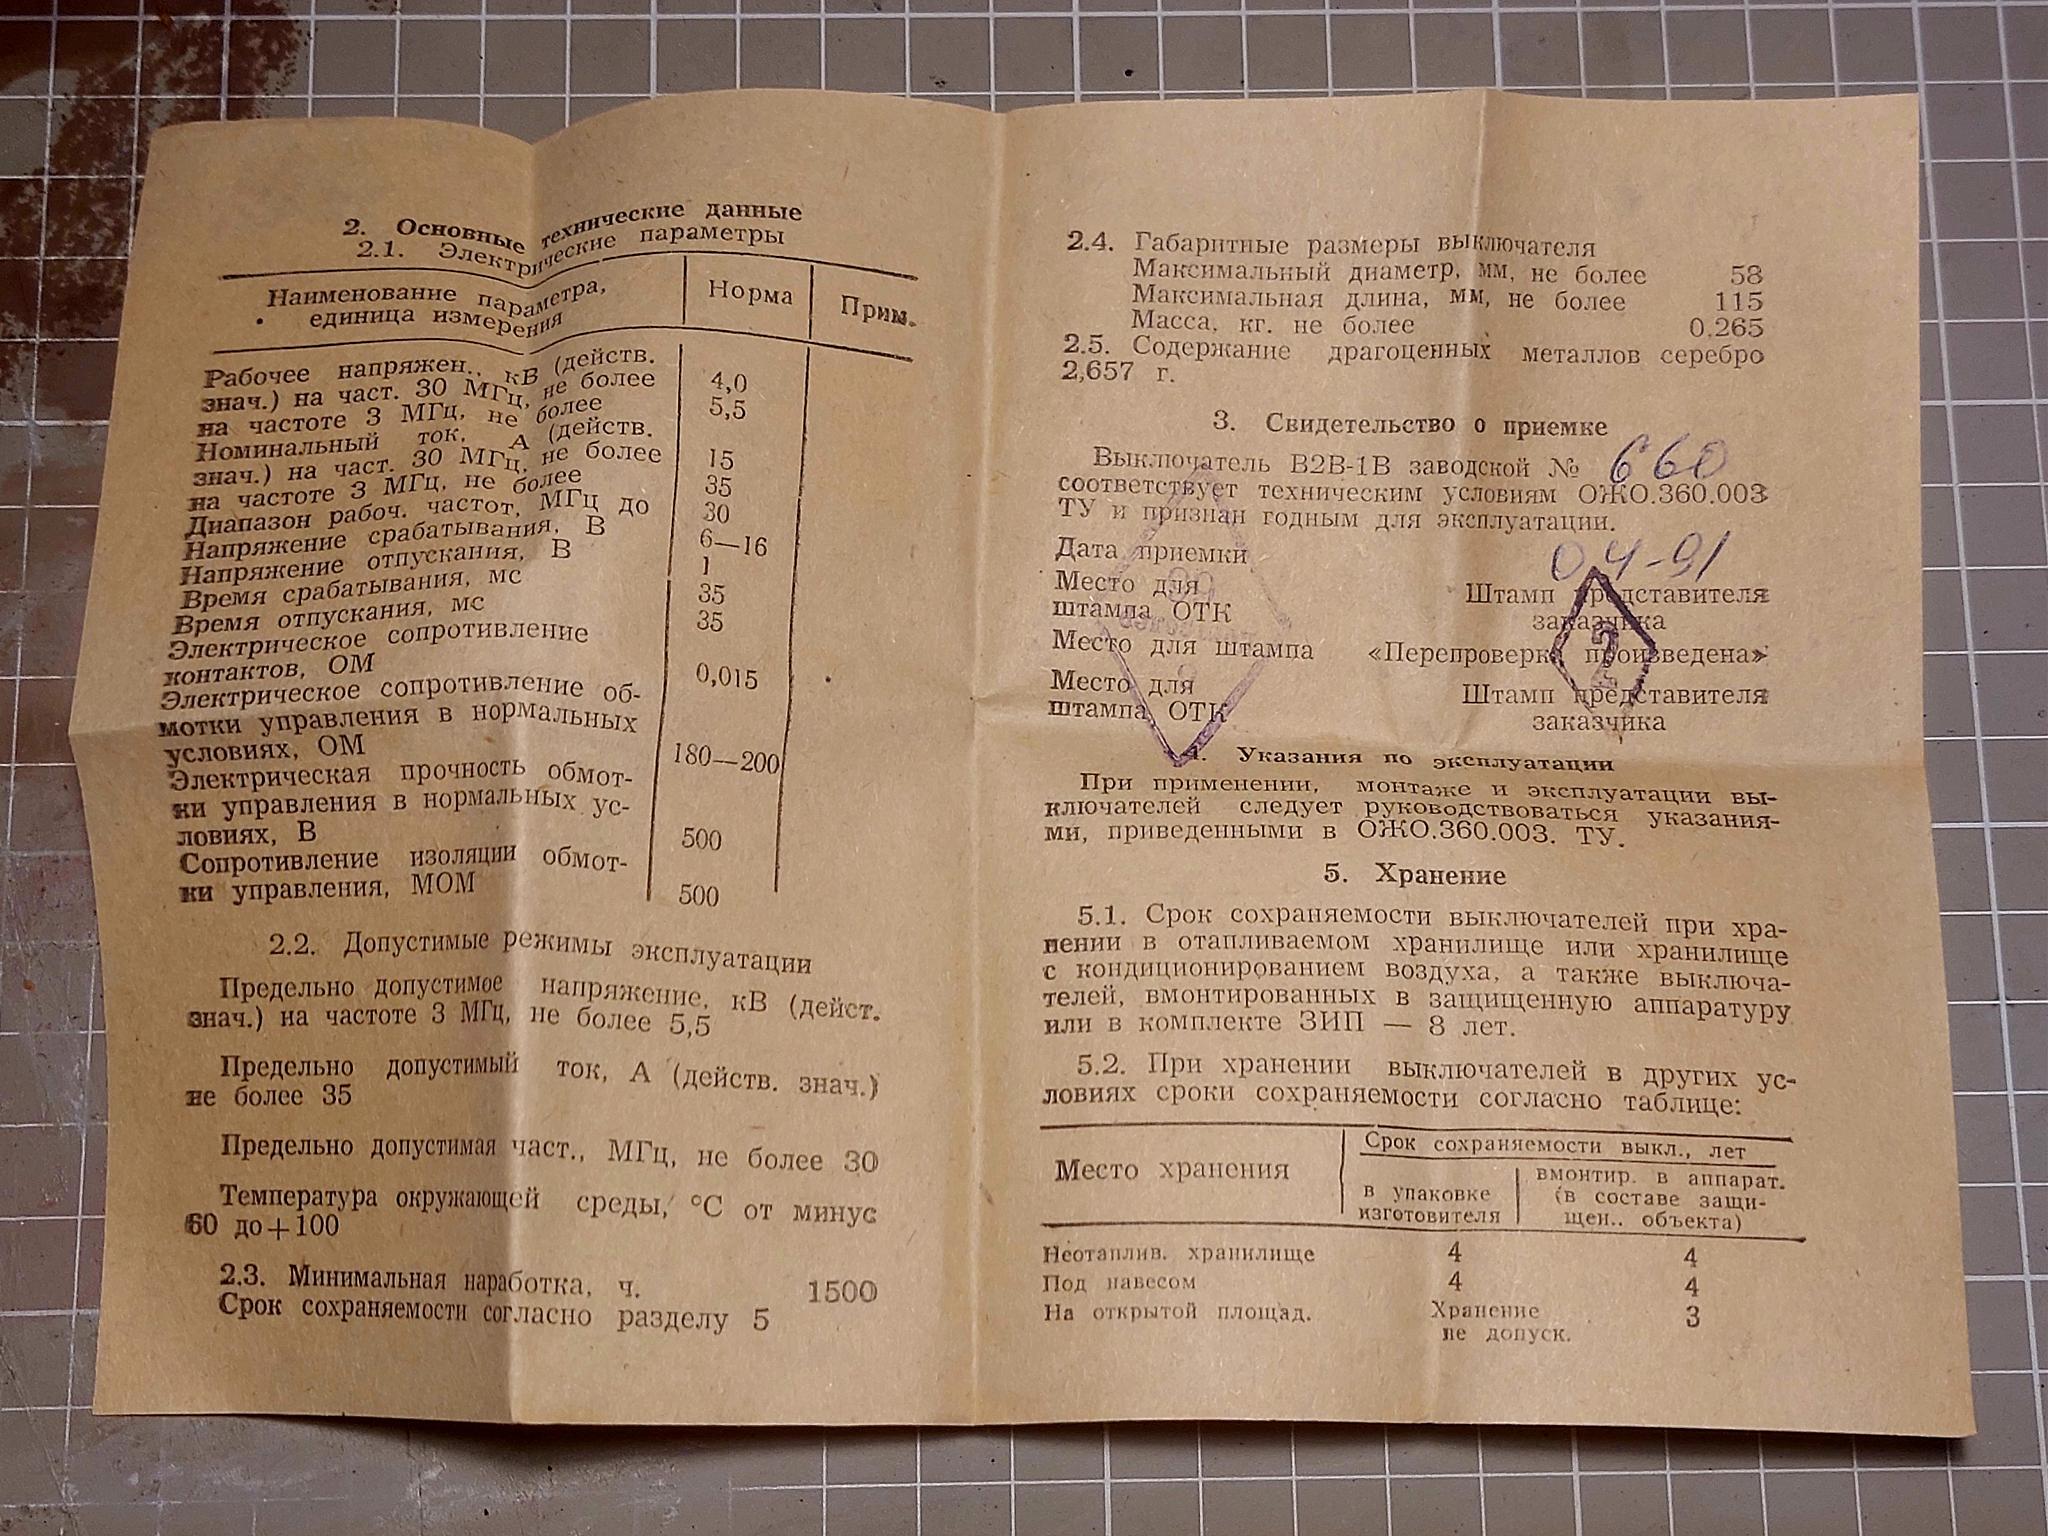 2. Основные технические данные
2.1. Электрические параметры
Наименование параметра,
единица измерения
Норма
Прим.
Рабочее напряжен., кВ (действ.
знач.) на част. 30 МГц, не более 4,0
на частоте 3 МГц, не более 5,5
Номинальный ток, А (действ.
знач.) на част. 30 МГц, не более 15
на частоте 3 МГц, не более 35
Диапазон рабоч. частот, МГц до 30
Напряжение срабатывания, В 6—16
Напряжение отпускания, В 1
Время срабатывания, мс 35
Время отпускания, мс 35
Электрическое сопротивление
контактов, ОМ 0,015
Электрическое сопротивление об-
мотки управления в нормальных
условиях, ОМ 180—200
Электрическая прочность обмот-
ки управления в нормальных ус-
ловиях, В 500
Сопротивление изоляции обмот-
ки управления, МОМ 500
2.2. Допустимые режимы эксплуатации
Предельно допустимое напряжение, кВ (дейст.
знач.) на частоте 3 МГц, не более 5,5
Предельно допустимый ток, А (действ. знач.)
не более 35
Предельно допустимая част., МГц, не более 30
Температура окружающей среды, °С от минус
60 до +100
2.3. Минимальная наработка, ч. 1500
Срок сохраняемости согласно разделу 5
2.4. Габаритные размеры выключателя
Максимальный диаметр, мм, не более 58
Максимальная длина, мм, не более 115
Масса, кг. не более 0,265
2.5. Содержание драгоценных металлов серебро
2,657 г.
3. Свидетельство о приемке
Выключатель В2В-1В заводской № 660
соответствует техническим условиям ОЖО.360.003
ТУ и признан годным для эксплуатации.
Дата приемки 04-91
Место для Штамп представителя
штампа ОТК заказчика
2
Место для штампа «Перепроверка произведена»
Место для Штамп представителя
штампа ОТК заказчика
4. Указания по эксплуатации
При применении, монтаже и эксплуатации вы-
ключателей следует руководствоваться указания-
ми, приведенными в ОЖО.360.003. ТУ.
5. Хранение
5.1. Срок сохраняемости выключателей при хра-
нении в отапливаемом хранилище или хранилище
с кондиционированием воздуха, а также выключа-
телей, вмонтированных в защищенную аппаратуру
или в комплекте ЗИП — 8 лет.
5.2. При хранении выключателей в других ус-
ловиях сроки сохраняемости согласно таблице:
Место хранения
Срок сохраняемости выкл., лет
в упаковке
изготовителя
вмонтир. в аппарат.
(в составе защи-
щен.. объекта)
Неотаплив. хранилище 4 4
Под навесом 4 4
На открытой площад. Хранение 3
не допуск.